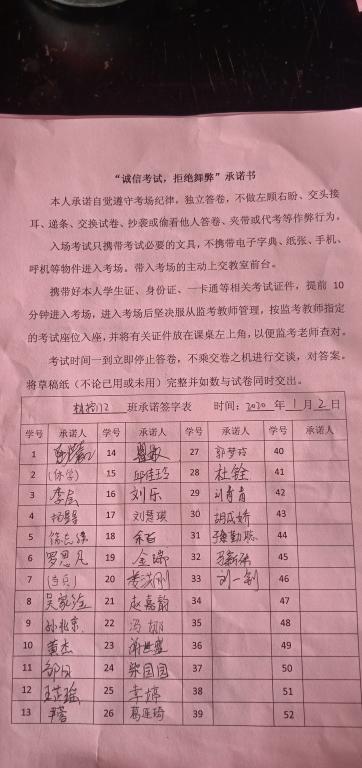 “诚信考试，拒绝舞弊”承诺书
本人承诺自觉遵守考场纪律，独立答卷，不做左顾右盼、交头接
耳、递条、交换试卷、抄袭或偷看他人答卷、夹带或代考等作弊行为。
入场考试只携带考试必要的文具，不携带电子字典、纸张、手机、
呼机等物件进入考场。带入考场的主动上交教室前台。
携带好本人学生证、身份证、一卡通等相关考试证件，提前 10
分钟进入考场，进入考场后坚决服从监考教师管理，按监考教师指定
的考试座位入座，并将有关证件放在课桌左上角，以便监考老师查对。
考试时间一到立即停止答卷，不乘交卷之机进行交谈，对答案。
将草稿纸（不论已用或未用）完整并如数与试卷同时交出。
班承诺签字表 时间：2020 年 1 月 2 日
学号 承诺人 学号 承诺人 学号 承诺人 学号 承诺人
1 14 27 郭梦婷 40
2 (休学) 15 邱佳玲 28 杜铨 41
3 16 刘乐 29 42
4 17 刘慧琪 30 胡成娇 43
5 18 余石 31 44
6 罗思凡 19 金瑞 32 45
7 20 33 刘一剑 46
8 吴家 21 赵嘉 34 47
9 孙兆京 22 冯娜 35 48
10 黄杰 23 36 49
11 邹 24 柴园园 37 50
12 王芷瑜 25 李婷 38 51
13 尹蓉 26 葛连琦 39 52